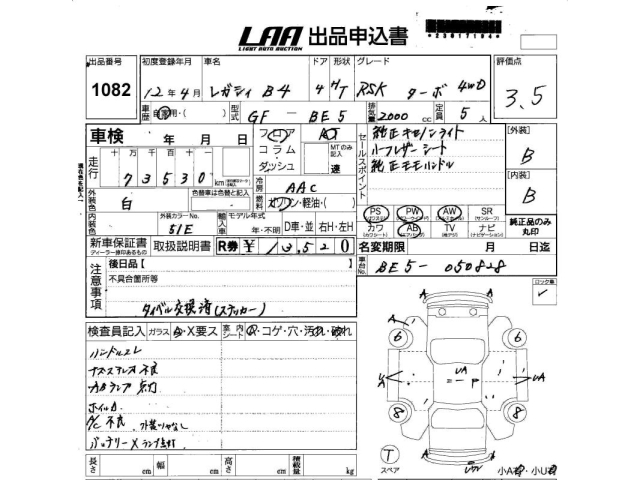 LAA 出品申込書
LIGHT AUTO AUCTION
出品番号 初度登録年月 車名 ドア 形状 グレード 評価点
1082 12年4月 レガシィ B4 4 H/T RSK ターボ 4WD 3.5
車歴 自家用・( ) 型式 GF - BE5 排気量 2000 cc 定員 5人
車検 年 月 日 フロア AT
コラム MTのみ記入
ダッシュ 速
走行 十 万 千 百 十 一
73530
セールスポイント
純正キセノンライト
ハーフレザーシート
純正モモハンドル
[外装]
B
[内装]
B
冷房 AAC
燃料 ガソリン・軽油・( )
外装色 白 色替車は色替と記入
内装色 外装カラーNo. 51E
輸入車 モデル年式 年・不明 D車・並 右H・左H
PS PW AW SR
(サンルーフ)
カワ AB TV ナビ
(カワシート) (エアバッグ) (ナビゲーション)
純正品のみ丸印
新車保証書 取扱説明書 R券 ¥ 13,520
ディーラー捺印あるもの
名変期限 月 日迄
車台No. BE5-050828
注意事項
後日品[ ]
不具合箇所等
タイベル交換済(ステッカー)
ロック集
検査員記入 ガラス A・X要ス 室内シート ・コゲ・穴・汚れ・破れ
ハンドルスレ
ナスステレオ不良
カカランプ点灯
ホイルA
A/C 不良
バッテリー×ランプ点灯
A A
6 6
UA UA UA
8 8
A A
T
スペア
小A・小U
長さ cm 幅 cm 高さ cm 積載量 kg